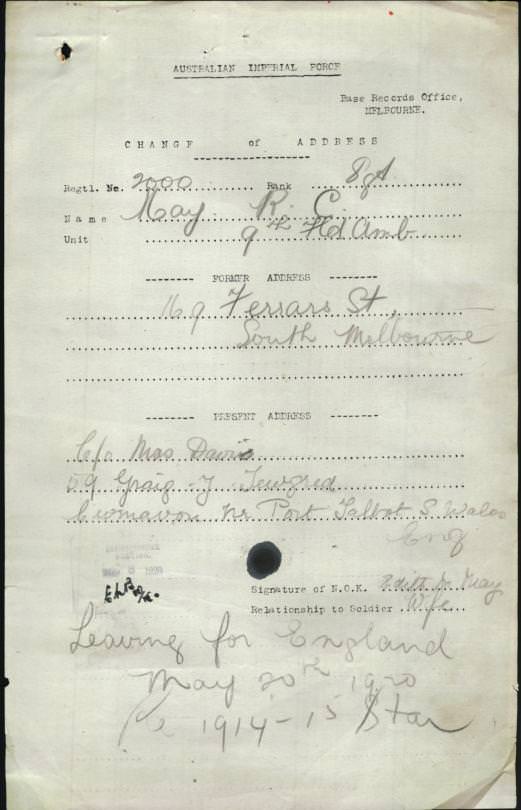 AUSTRALIAN IMPERIAL FORCE
Base Records Office,
MELBOURNE.
CHANGE of ADDRESS
Regtl. No. 2000 Rank Sgt
Name May R. C
Unit 9th Fld Amb
FORMER ADDRESS
169 Ferrars St,
South Melbourne
PRESENT ADDRESS
C/o Mrs Davis
59 Graig-y-Tewgoed
Cwmavon Nr Port Talbot S. Wales
Eng
Signature of N.O.K. Edith M May
Relationship to Soldier Wife
Leaving for England
May 20th 1920
Re 1914-15 Star